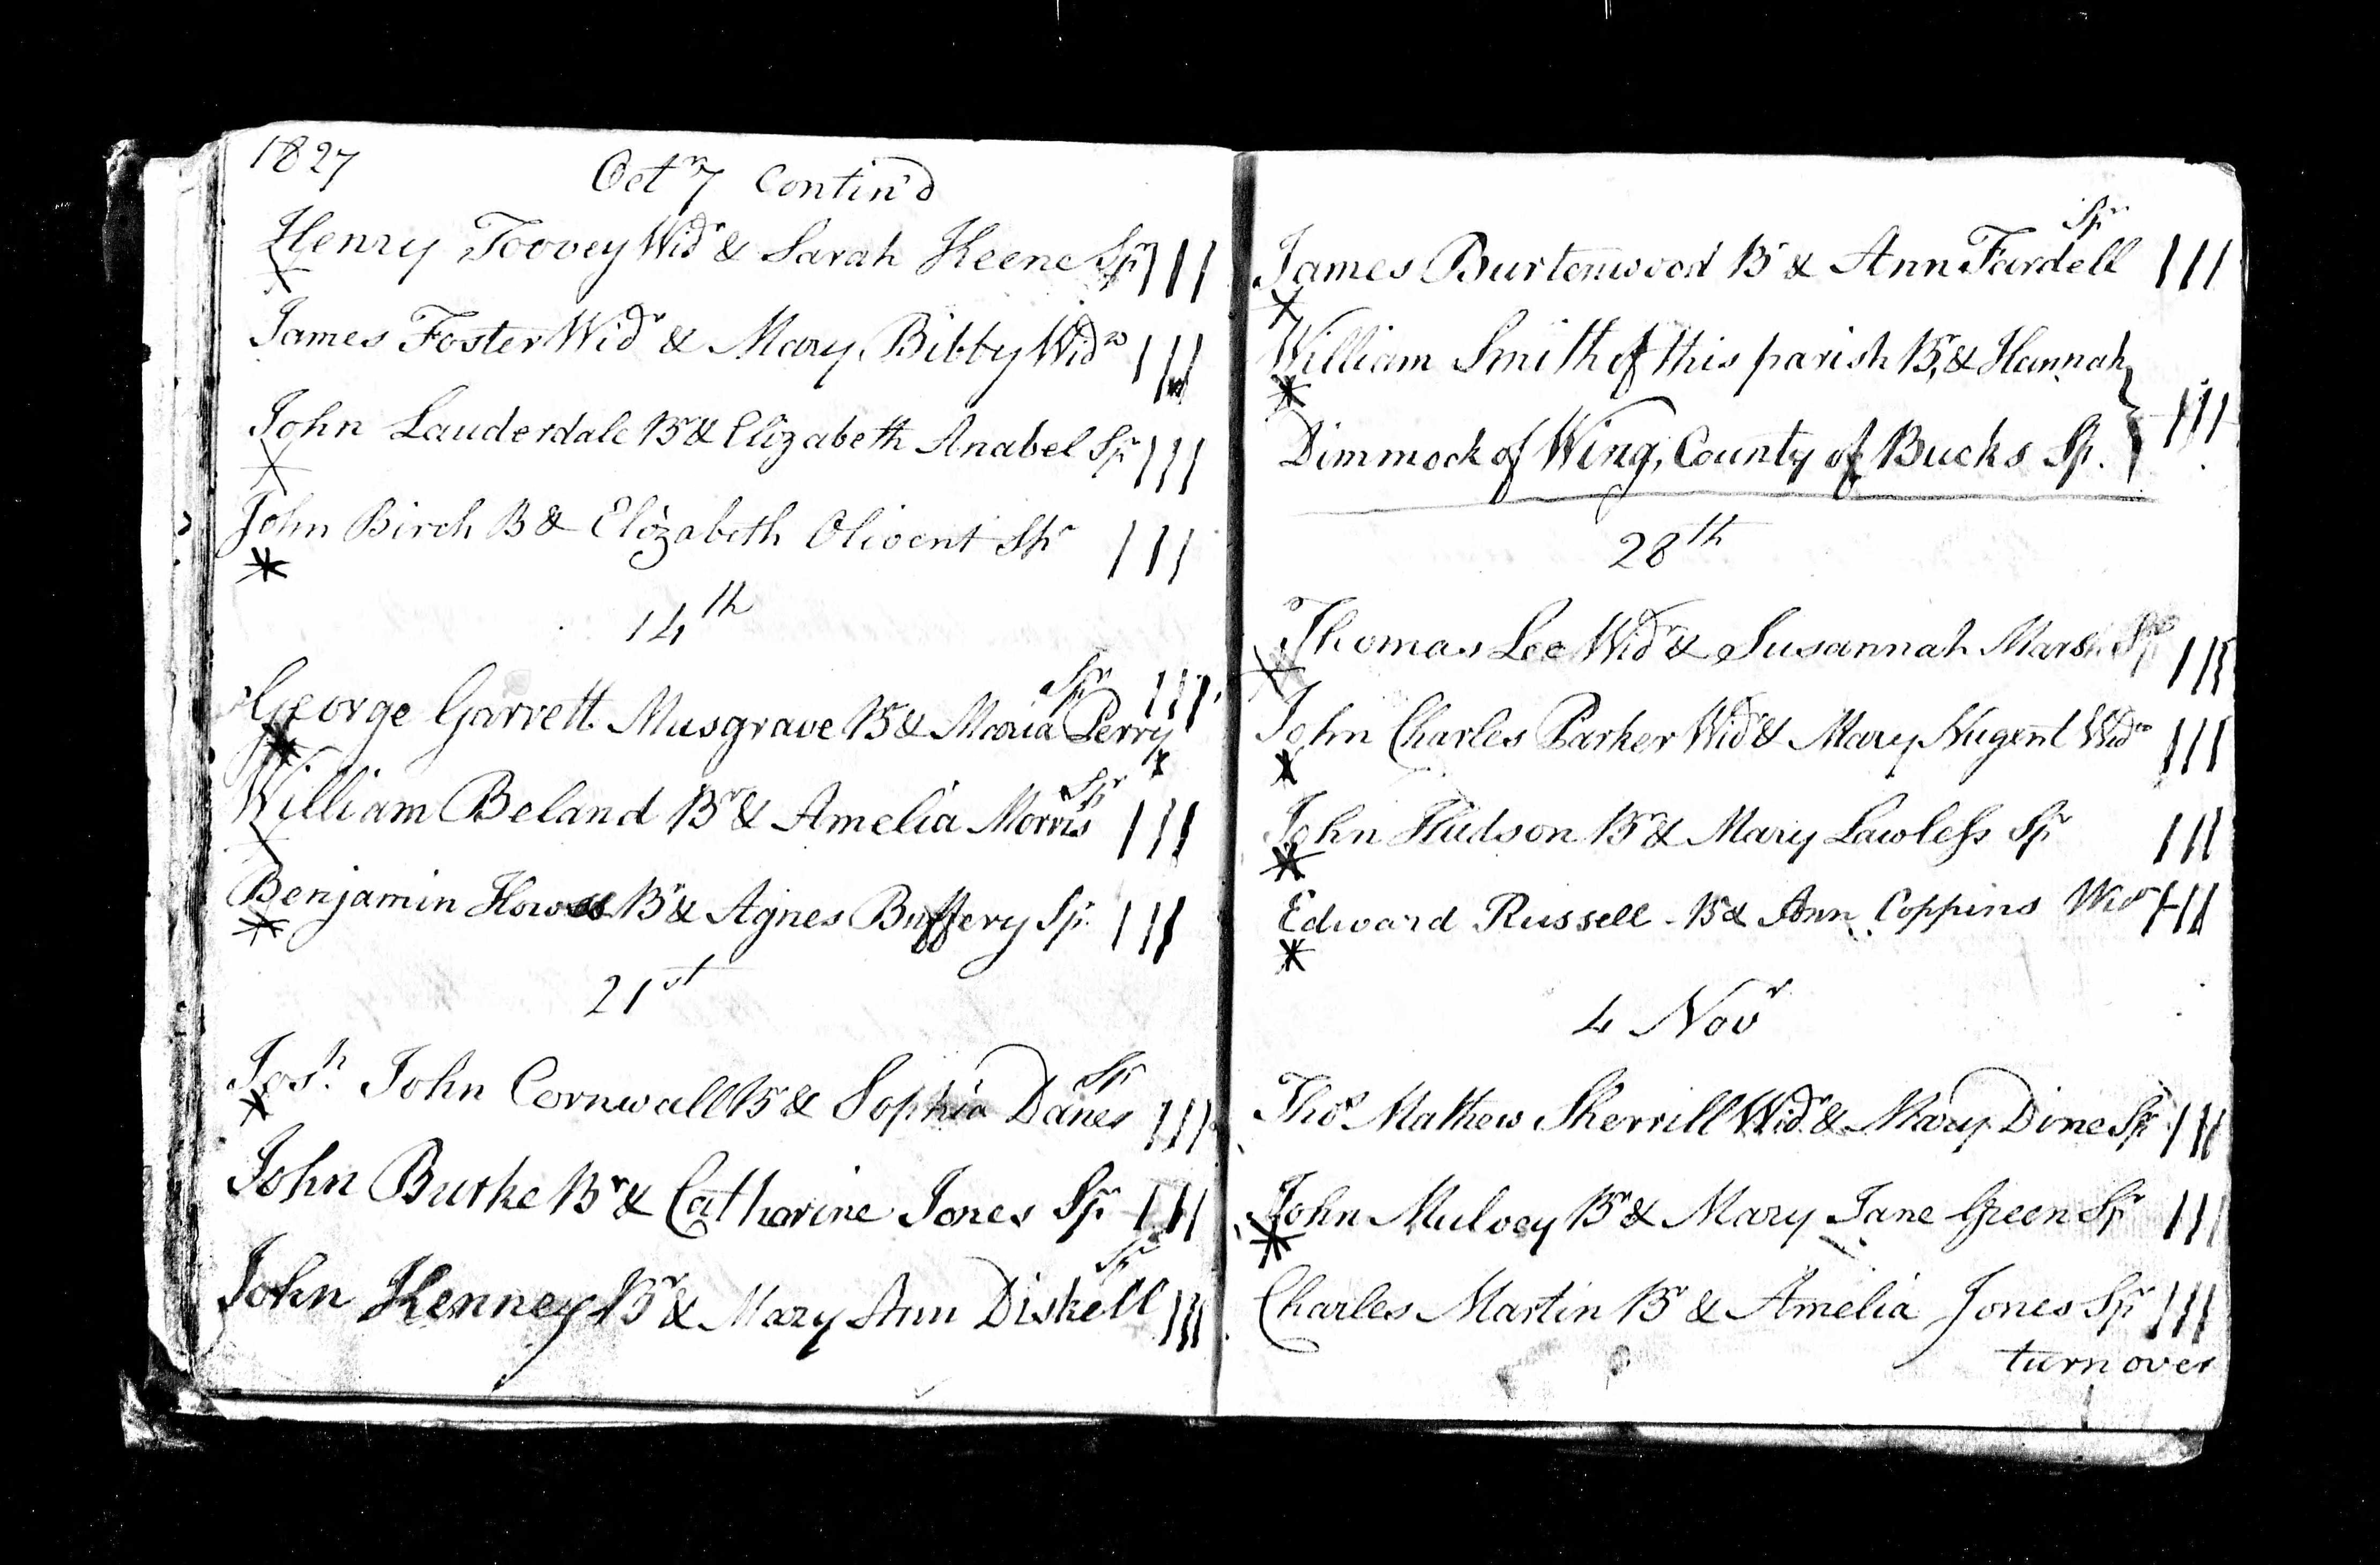 1827
Octr 7 Contin'd
Henry Toovey Widr & Sarah Keene Spr III
James Foster Widr & Mary Bibby Widw III
John Lauderdale Br & Elizabeth Anabel Spr III
John Birch B & Elizabeth Olivent Spr III
14th
George Garrett Musgrave B & Maria Perry Spr III
William Beland Br & Amelia Morris Spr III
Benjamin Howes Br & Agnes Buffery Sp. III
21st
Josh. John Cornwall B & Sophia Danes Spr III
John Burke Br & Catharine Jones Sp. III
John Kenney Br & Mary Ann Diskell Spr III
James Burtenwood Br & Ann Fardell Spr III
William Smith of this parish Br, & Hannah
Dimmock of Wing, County of Bucks Sp. III
28th
Thomas Lee Widr & Susannah Marsh Sp III
John Charles Parker Widr & Mary Nugent Widw III
John Hudson Br & Mary Lawless Spr III
Edward Russell - B & Ann Coppins Wid III
4 Novr
Thos Mathew Sherrill Widr & Mary Dine Spr III
John Mulvey Br & Mary Jane Green Spr III
Charles Martin Br & Amelia Jones Spr III
turn over